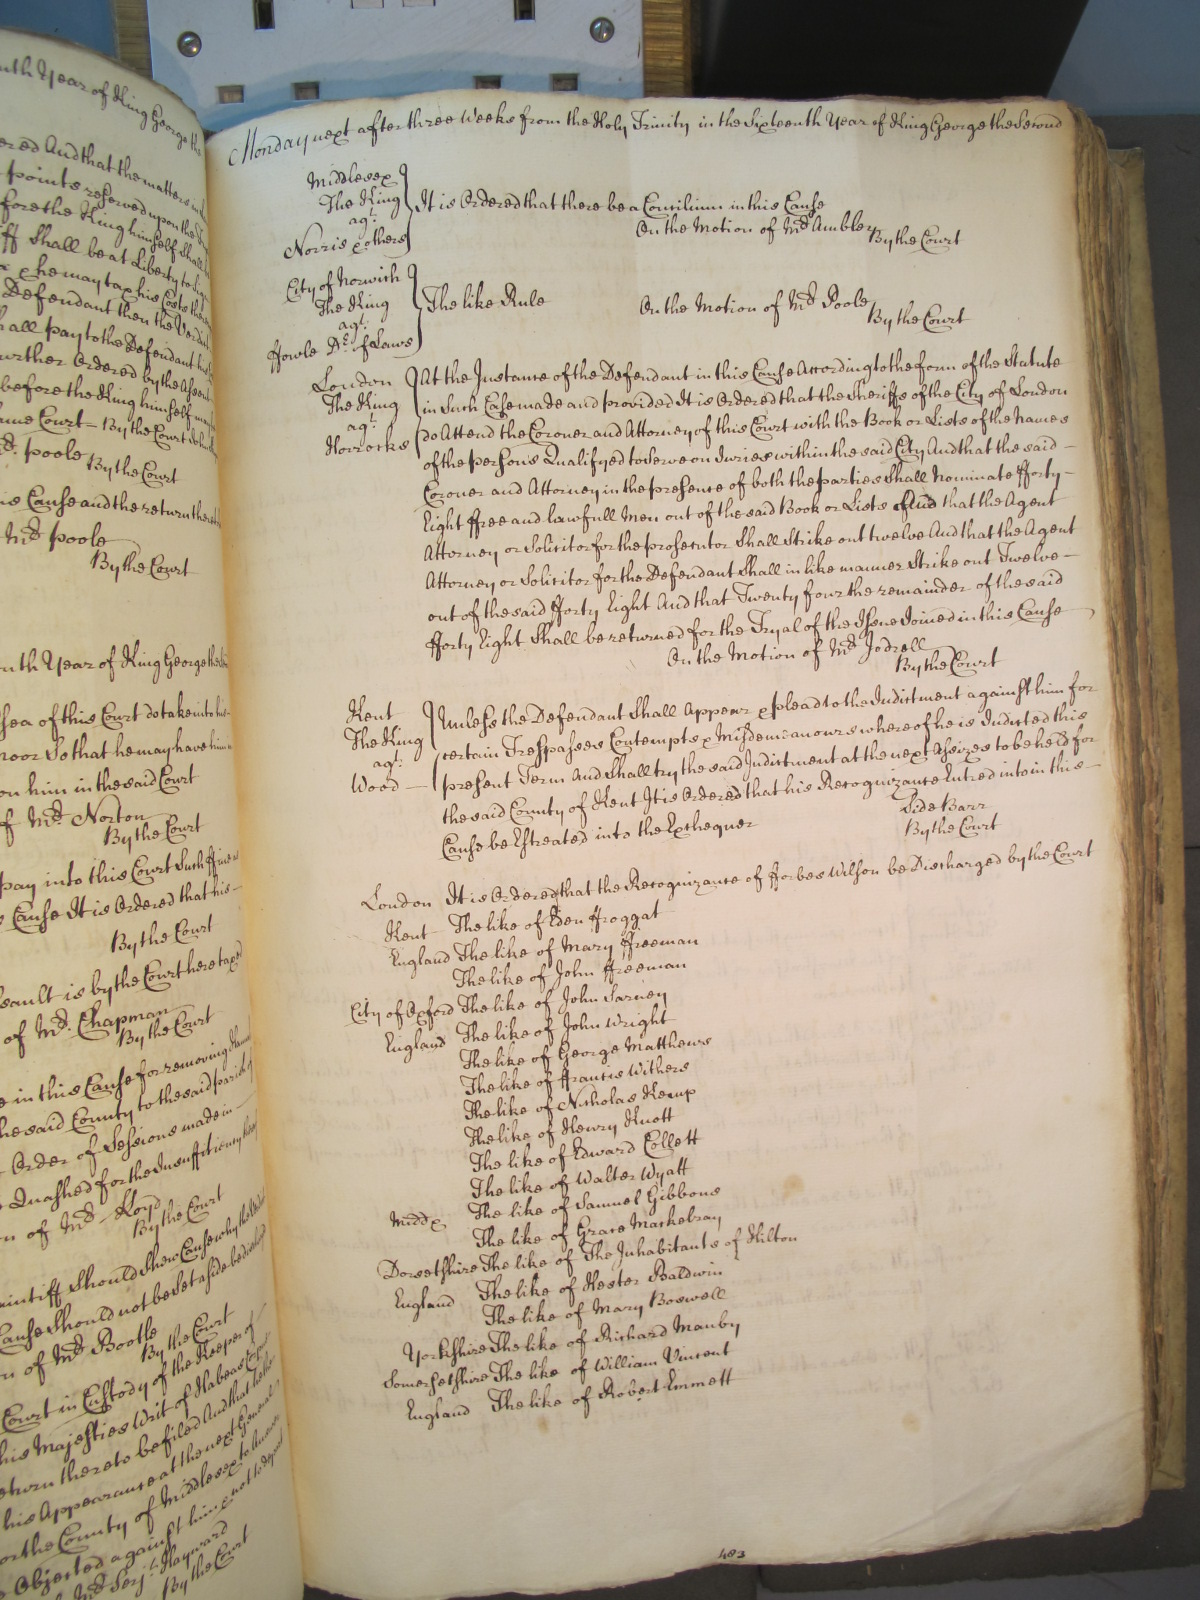 nth Year of King George the
ered And that the matters
points reserved upon the
fore the King himself Shall
iff Shall be at Liberty to
x he may tax his Costs
Defendant then the Verdict
hall pay to the Defendant
urther Ordered by the Assent
before the King himself
ame Court — By the Court
Mr. Poole
By the Court
is Cause and the return thereof
Mr. Poole
By the Court
nth Year of King George the
hsea of this Court do take into his
moor So that he may have him
on him in the said Court
of Mr. Norton
By the Court
pay into this Court Such ffine
Cause It is Ordered that his —
By the Court
ssault is by the Court here taxed
of Mr. Chapman
By the Court
e in this Cause for removing
he said County to the said parish of
Order of Sessions made in —
Quashed for the Insufficiency
n of Mr. Lloyd
By the Court
aintiff Should Shew Cause why the
Cause Should not be Set aside
n of Mr. Bootle
By the Court
Court in Custody of the Keeper of
his Majesties Writ of Habeas Corpus
eturn thereto be filed And that
his Appearance at the next General
or the County of Middlesex to Answer
Objected against him & not to depart
Mr. Serjt. Hayward
By the Court
Monday next after three Weeks from the Holy Trinity in the Sixteenth Year of King George the Second
Middlesex
The King
agt.
Norris & others
It is Ordered that there be a Concilium in this Cause
On the Motion of Mr. Ambler
By the Court
City of Norwich
The King
agt.
ffowle Dr. of Laws
The like Rule On the Motion of Mr. Poole
By the Court
London
The King
agt.
Horrocks
At the Instance of the Defendant in this Cause According to the form of the Statute
in Such Case made and provided It is Ordered that the Sheriffs of the City of London
do Attend the Coroner and Attorney of this Court with the Book or Lists of the Names
of the persons Qualifyed to Serve on Juries within the said City And that the said —
Coroner and Attorney in the presence of both the parties Shall Nominate fforty —
Eight ffree and lawfull Men out of the said Book or Lists And that the Agent
Attorney or Solicitor for the prosecutor Shall Strike out twelve And that the Agent
Attorney or Solicitor for the Defendant Shall in like manner Strike out Twelve —
out of the said fforty Eight And that Twenty four the remainder of the said
fforty Eight Shall be returned for the Tryal of the Issue Joined in this Cause
On the Motion of Mr. Jodrell
By the Court
Kent
The King
agt.
Wood —
Unless the Defendant Shall Appear & plead to the Indictment against him for
certain Trespasses Contempts & Misdemeanours whereof he is Indicted this
present Term And Shall try the said Indictment at the next Assizes to be held for
the said County of Kent It is Ordered that his Recognizance Entred into in this —
Cause be Estreated into the Exchequer
Side Barr
By the Court
London It is Ordered that the Recognizance of fforbes Wilson be Discharged by the Court
Kent The like of Eden ffroggat
England The like of Mary ffreeman
The like of John ffreeman
City of Oxford The like of John Sarney
England The like of John Wright
The like of George Matthews
The like of ffrancis Withers
The like of Nicholas Kemp
The like of Henry Knott
The like of Edward Collett
The like of Walter Wyatt
Middx The like of Samuel Gibbons
The like of Grace Mackelray
Dorsetshire The like of The Inhabitants of Hilton
England The like of Hester Baldwin
The like of Mary Boswell
Yorkshire The like of Richard Manby
Somersetshire The like of William Vincent
England The like of Robert Emmett
483